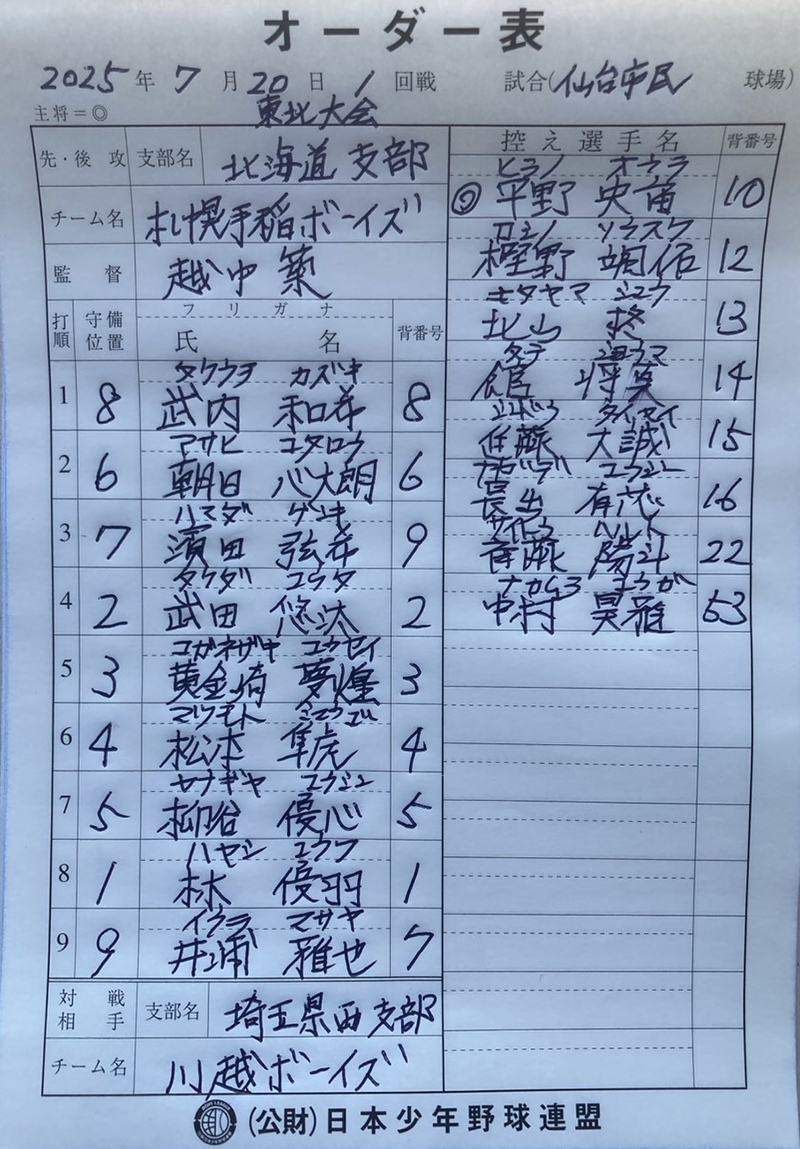 オーダー表
2025年 7月 20日 1回戦 試合(仙台市民 球場)
主将=◎ 東北大会
先・後攻 支部名 北海道支部
チーム名 札幌手稲ボーイズ
監督 越中 築
打順 守備位置 フリガナ 氏名 背番号
タケウチ カズキ
1 8 武内 和希 8
アサヒ コタロウ
2 6 朝日 心太朗 6
ハマダ ゲンキ
3 7 濱田 弦希 9
タケダ ユウタ
4 2 武田 悠汰 2
コガネザキ ユウセイ
5 3 黄金崎 夢煌 3
マツモト
6 4 松本 隼虎 4
ヤナギヤ ユウシン
7 5 柳谷 優心 5
ハヤシ ユウワ
8 1 林 優羽 1
イウラ マサヤ
9 9 井浦 雅也 7
対戦相手 支部名 埼玉県西支部
チーム名 川越ボーイズ
控え選手名 背番号
ヒラノ オウラ
◎ 平野 央 10
カシノ ソウスケ
樫野 颯佑 12
キタヤマ シュウ
北山 柊 13
タテ ショウマ
館 将真 14
タイセイ
佐藤 大誠 15
ナガイデ ユウシン
長出 有 16
サイトウ ハルト
斉藤 陽斗 22
ナカムラ コウガ
中村 昊雅 53
(公財)日本少年野球連盟